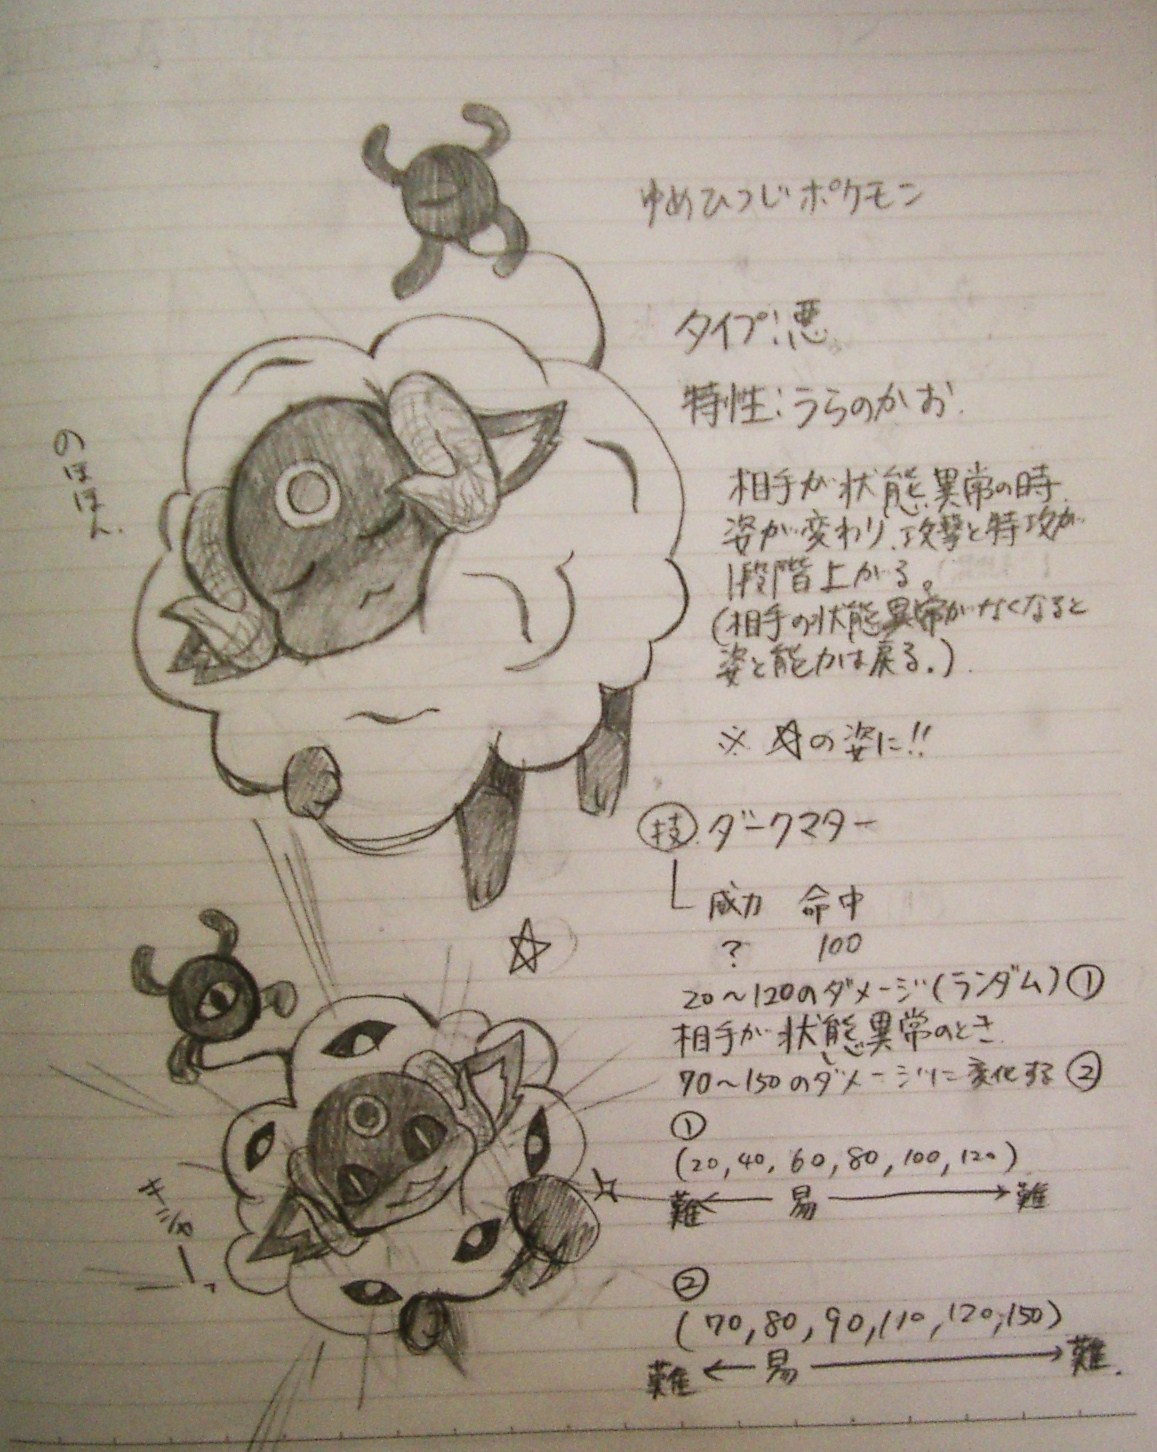 ゆめひつじポケモン
タイプ:悪
特性:うらのかお
のほほん
相手が状態異常の時
姿が変わり、攻撃と特攻が
1段階上がる。
(相手の状態異常がなくなると
姿と能力は戻る。)
※ ☆の姿に!!
技 ダークマター
威力 命中
? 100
20〜120のダメージ(ランダム)①
相手が状態異常のとき
70〜150のダメージに変化する②
①
(20,40,60,80,100,120)
難 ← 易 → 難
②
(70,80,90,110,120,150)
難 ← 易 → 難
☆
キシャーッ